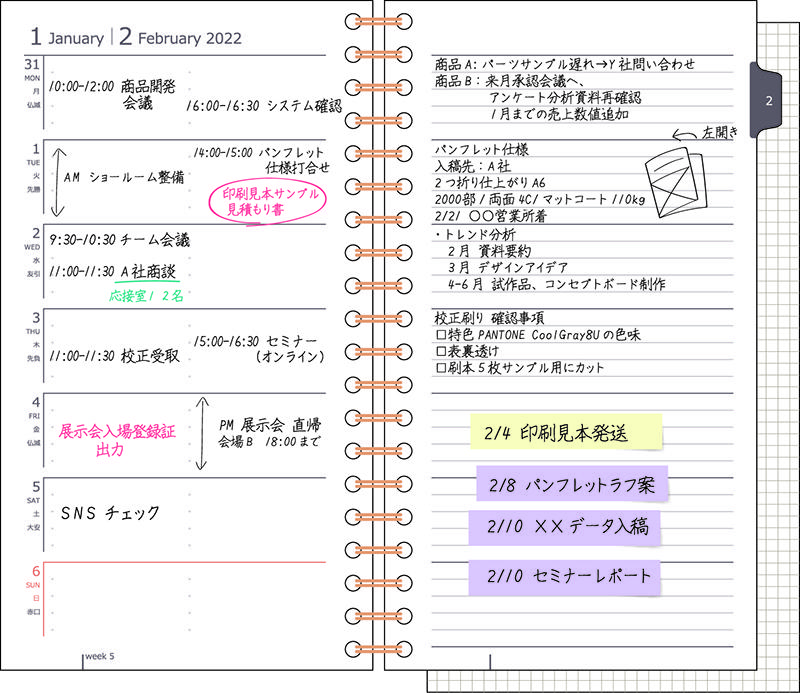 1 January 2 February 2022
31
MON
月
仏滅
10:00-12:00 商品開発
会議
16:00-16:30 システム確認
1
TUE
火
先勝
AM ショールーム整備
14:00-15:00 パンフレット
仕様打合せ
印刷見本サンプル
見積もり書
2
WED
水
友引
9:30-10:30 チーム会議
11:00-11:30 A社商談
応接室1 2名
3
THU
木
先負
11:00-11:30 校正受取
15:00-16:30 セミナー
(オンライン)
4
FRI
金
仏滅
展示会入場登録証
出力
PM 展示会 直帰
会場B 18:00まで
5
SAT
土
大安
SNS チェック
6
SUN
日
赤口
week 5
商品A: パーツサンプル遅れ→Y社問い合わせ
商品B: 来月承認会議へ、
アンケート分析資料再確認
1月までの売上数値追加
2
左開き
パンフレット仕様
入稿先: A社
2つ折り仕上がりA6
2000部/両面4C/マットコート110kg
2/21 〇〇営業所着
・トレンド分析
2月 資料要約
3月 デザインアイデア
4-6月 試作品、コンセプトボード制作
校正刷り 確認事項
□特色PANTONE CoolGray8Uの色味
□表裏透け
□刷本5枚サンプル用にカット
2/4 印刷見本発送
2/8 パンフレットラフ案
2/10 ××データ入稿
2/10 セミナーレポート